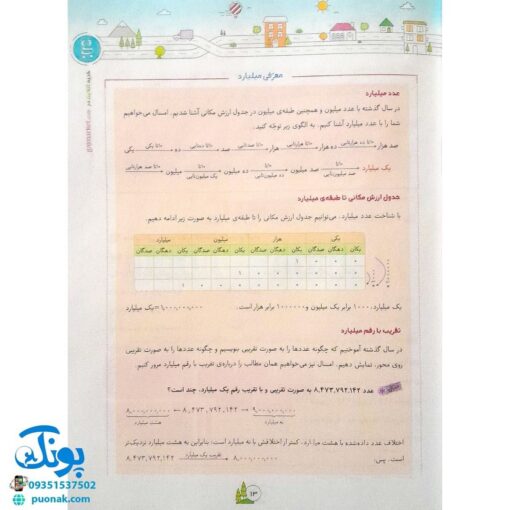 معرّفی میلیارد
عدد میلیارد
در سال گذشته با عدد میلیون و همچنین طبقه‌ی میلیون در جدول ارزش مکانی آشنا شدیم. امسال می‌خواهیم
شما را با عدد میلیارد آشنا کنیم. به الگوی زیر توجّه کنید.
یکی ۱۰تا یکی ده ۱۰تا ده‌تایی صد ۱۰تا صدتایی هزار ۱۰تا هزارتایی ده هزار ۱۰تا ده هزارتایی صد هزار
۱۰تا صد هزارتایی میلیون ۱۰تا یک میلیون‌تایی ده میلیون ۱۰تا ده میلیون‌تایی صد میلیون ۱۰تا صد میلیون‌تایی یک میلیارد
جدول ارزش مکانی تا طبقه‌ی میلیارد
با شناخت عدد میلیارد، می‌توانیم جدول ارزش مکانی را تا طبقه‌ی میلیارد به صورت زیر ادامه دهیم.
میلیارد میلیون هزار یکی
صدگان دهگان یکان صدگان دهگان یکان صدگان دهگان یکان صدگان دهگان یکان
۱ ۰ ۰ ۰
۱ ۰ ۰ ۰ ۰ ۰ ۰
۱ ۰ ۰ ۰ ۰ ۰ ۰ ۰ ۰ ۰
یک میلیارد، ۱۰۰۰ برابر یک میلیون و ۱۰۰۰۰۰۰ برابر هزار است. ۱,۰۰۰,۰۰۰,۰۰۰ = یک میلیارد
تقریب با رقم میلیارد
در سال گذشته آموختیم که چگونه عددها را به صورت تقریبی بنویسیم و چگونه عددها را به صورت تقریبی
روی محور، نمایش دهیم. امسال نیز می‌خواهیم همان مطالب را درباره‌ی تقریب با رقم میلیارد مرور کنیم.
عدد ۸,۴۷۳,۷۹۲,۱۴۲ به صورت تقریبی و با تقریب رقم یک میلیارد، چند است؟
۸,۰۰۰,۰۰۰,۰۰۰ ← ۸,۴۷۳,۷۹۲,۱۴۲ → ۹,۰۰۰,۰۰۰,۰۰۰
هشت میلیارد نه میلیارد
اختلاف عدد داده‌شده با هشت میلیارد، کمتر از اختلافش با نه میلیارد است؛ بنابراین به هشت میلیارد نزدیک‌تر
است. پس: ۸,۴۷۳,۷۹۲,۱۴۲ تقریب یک میلیارد ۸,۰۰۰,۰۰۰,۰۰۰
۱۳
پونک
09351537502
puonak.com